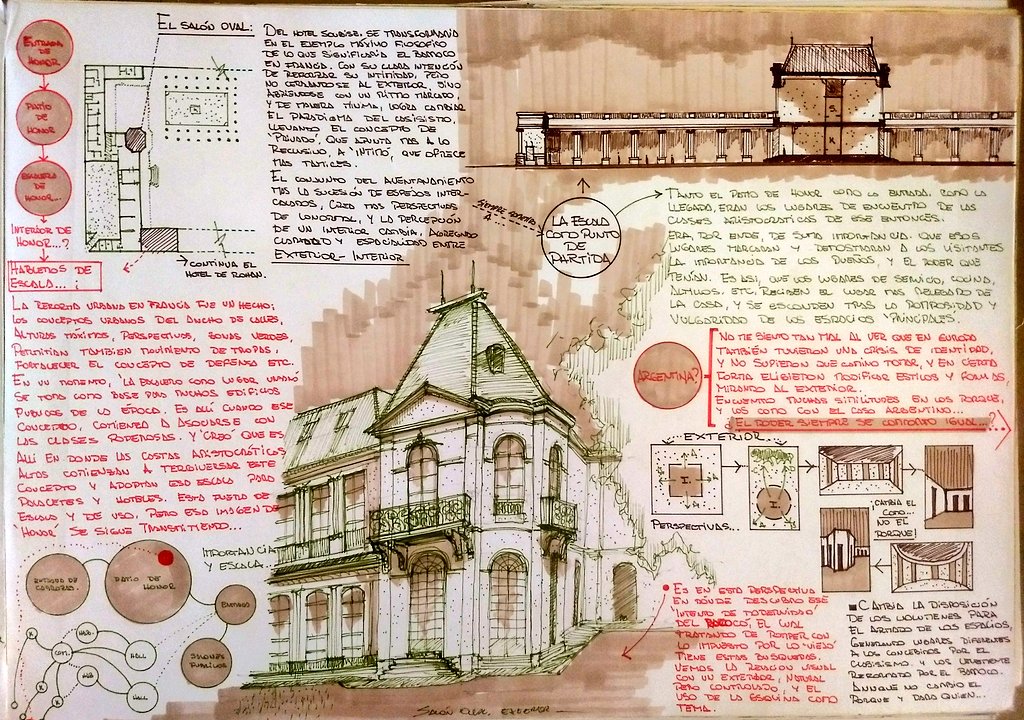 ENTRADA
DE
HONOR
PATIO
DE
HONOR
ESCALERA
DE
HONOR...
INTERIOR DE
HONOR...?
HABLEMOS DE
ESCALA... ¡
EL SALÓN OVAL:
DEL HOTEL SOUBISE, SE TRANSFORMARIA
EN EL EJEMPLO MÁXIMO FILOSOFICO
DE LO QUE SIGNIFICARIA EL BARROCO
EN FRANCIA. CON SU CLARA INTENCIÓN
DE REFORZAR SU INTIMIDAD, PERO
NO CERRANDOSE AL EXTERIOR, SINO
ABRIENDOSE CON UN RITMO MARCADO,
Y DE MANERA MINIMA, LOGRA CAMBIAR
EL PARADIGMA DEL CLASISISMO,
LLEVANDO EL CONCEPTO DE
'PRIVADO', QUE APUNTA MAS A LO
RECLUSIVO, A 'INTIMO', QUE OFRECE
MAS MATICES.
EL CONJUNTO DEL AVENTANAMIENTO
MAS LA SUCESIÓN DE ESPEJOS INTER-
CALADOS, CREA MAS PERSPECTIVAS
DE LONGITUD, Y LA PERCEPCIÓN
DE UN INTERIOR CAMBIA, AGREGANDO
CUALIDAD Y ESPECIALIDAD ENTRE
EXTERIOR-INTERIOR
CONTINUA EL
HOTEL DE ROHAN.
LA ESCALA
COMO PUNTO
DE
PARTIDA
TANTO EL PATIO DE HONOR COMO LA ENTRADA, COMO LA
LLEGADA, ERAN LOS LUGARES DE ENCUENTRO DE LAS
CLASES ARISTOCRATICAS DE ESE ENTONCES.
ERA, POR ENDE, DE SUMA IMPORTANCIA, QUE ESOS
LUGARES MARCARAN Y DEMOSTRARAN A LOS VISITANTES
LA IMPORTANCIA DE LOS DUEÑOS, Y EL PODER QUE
TENIAN. ES ASI, QUE LOS LUGARES DE SERVICIO, COCINA,
ALTILLOS, ETC, RECIBEN EL LUGAR MAS RELEGADO DE
LA CASA, Y SE ESCONDEN TRAS LA POMPOSIDAD Y
VULGARIDAD DE LOS ESPACIOS PRINCIPALES.
LA REFORMA URBANA EN FRANCIA FUE UN HECHO;
LOS CONCEPTOS URBANOS DEL ANCHO DE CALLES,
ALTURAS MÁXIMAS, PERSPECTIVAS, ZONAS VERDES,
PERMITIAN TAMBIEN MOVIMIENTO DE TROPAS,
FORTALECER EL CONCEPTO DE DEFENSA ETC.
EN UN MOMENTO, 'LA ESCALERA COMO LUGAR URBANO'
SE TOMA COMO BASE PARA MUCHOS EDIFICIOS
PUBLICOS DE LA ÉPOCA. ES ALLI CUANDO ESE
CONCEPTO, COMIENZA A ASOCIARSE CON
LAS CLASES PODEROSAS. Y 'CREO' QUE ES
ALLI EN DONDE LAS CASTAS ARISTOCRÁTICAS
ALTAS COMIENZAN A TERGIVERSAR ESTE
CONCEPTO Y ADOPTAN ESA ESCALA PARA
PALACETES Y HOTELES. ESTA FUERA DE
ESCALA Y DE USO, PERO ESA IMAGEN DE
'HONOR' SE SIGUE TRANSMITIENDO...
ARGENTINA?
NO ME SIENTO TAN MAL AL VER QUE EN EUROPA
TAMBIÉN TUVIERON UNA CRISIS DE IDENTIDAD,
Y NO SUPIERON QUE CAMINO TOMAR, Y EN CIERTA
FORMA ELIGIERON MODIFICAR ESTILOS Y FORMAS,
MIRANDO AL EXTERIOR.
ENCUENTRO MUCHAS SIMILITUDES EN LOS PORQUE,
Y LOS COMO CON EL CASO ARGENTINO...
¿EL PODER SIEMPRE SE COMPORTO IGUAL...?
EXTERIOR...
I.
I.
PERSPECTIVAS...
CAMBIA EL
COMO...
NO EL
PORQUE!
IMPORTANCIA
Y ESCALA.
ENTRADA DE
CARROZAS.
PATIO DE
HONOR
ENTRADA
SALONES
PUBLICOS
HAB.
HALL
HAB
HALL
ES EN ESTA PERSPECTIVA
EN DÓNDE DESCUBRO ESE
'INTENTO DE MODERNIDAD'
DEL BAROCO, EL CUAL
TRATANDO DE ROMPER CON
LO IMPUESTO POR LO 'VIEJO'
TIENE ESTAS BUSQUEDAS.
VEMOS LA RELACION VISUAL
CON UN EXTERIOR, NATURAL
PERO CONTROLADO, Y EL
USO DE LA ESQUINA COMO
TEMA.
CAMBIA LA DISPOSICIÓN
DE LOS VOLUMENES PARA
EL ARMADO DE LOS ESPACIOS,
GENERANDO LUGARES DIFERENTES
A LOS CONCEBIDOS POR EL
CLASISISMO. Y LOS LEVEMENTE
REFORMADO POR EL BAROCO.
AUNQUE NO CAMBIO EL
PORQUE Y PARA QUIEN...
SALÓN OVAL, EXTERIOR